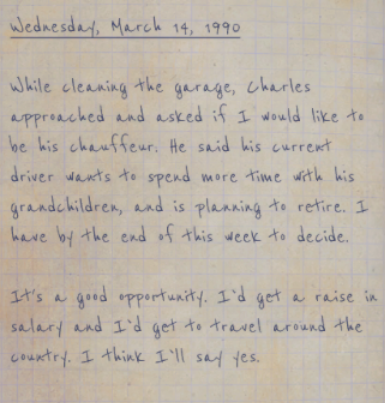 Wednesday, March 14, 1990
While cleaning the garage, Charles
approached and asked if I would like to
be his chauffeur. He said his current
driver wants to spend more time with his
grandchildren, and is planning to retire. I
have by the end of this week to decide.
It's a good opportunity. I'd get a raise in
salary and I'd get to travel around the
country. I think I'll say yes.